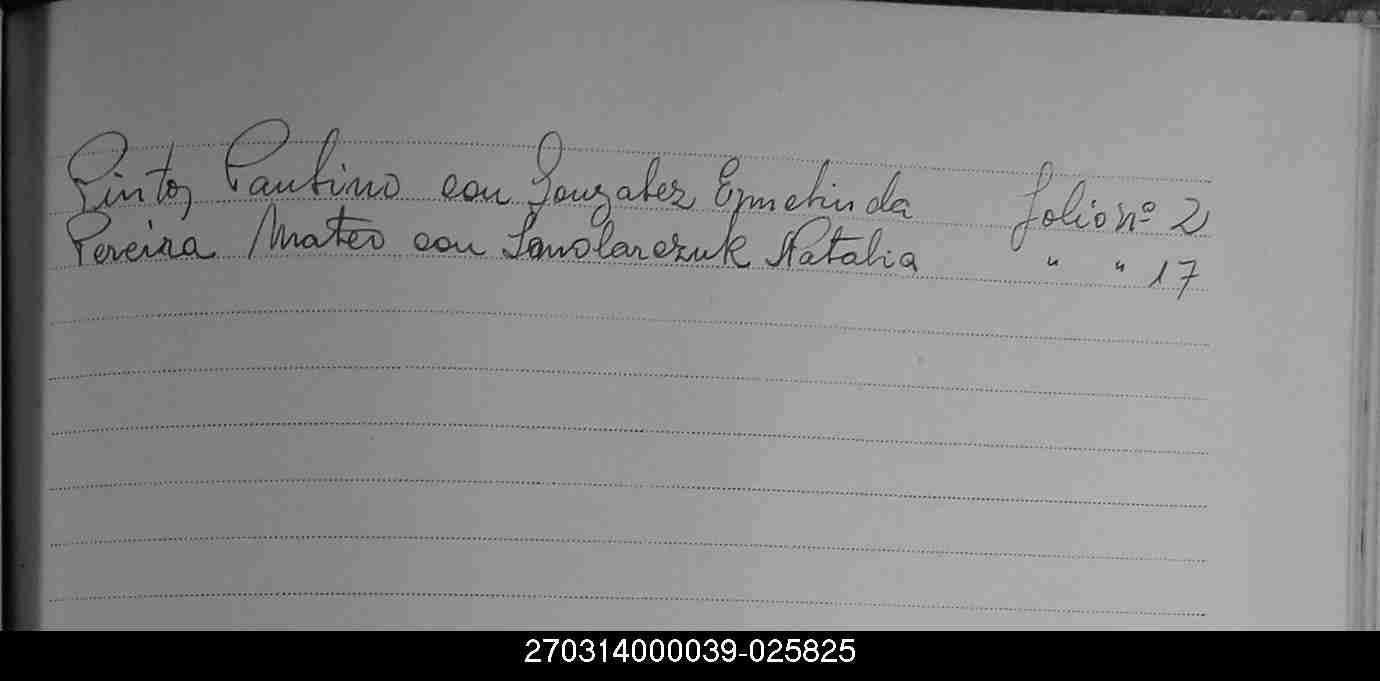 Pintos Paulino con Gonzalez Ermelinda folio nº 2
Pereira Mateo con Samolarczuk Natalia " " 17
270314000039-025825